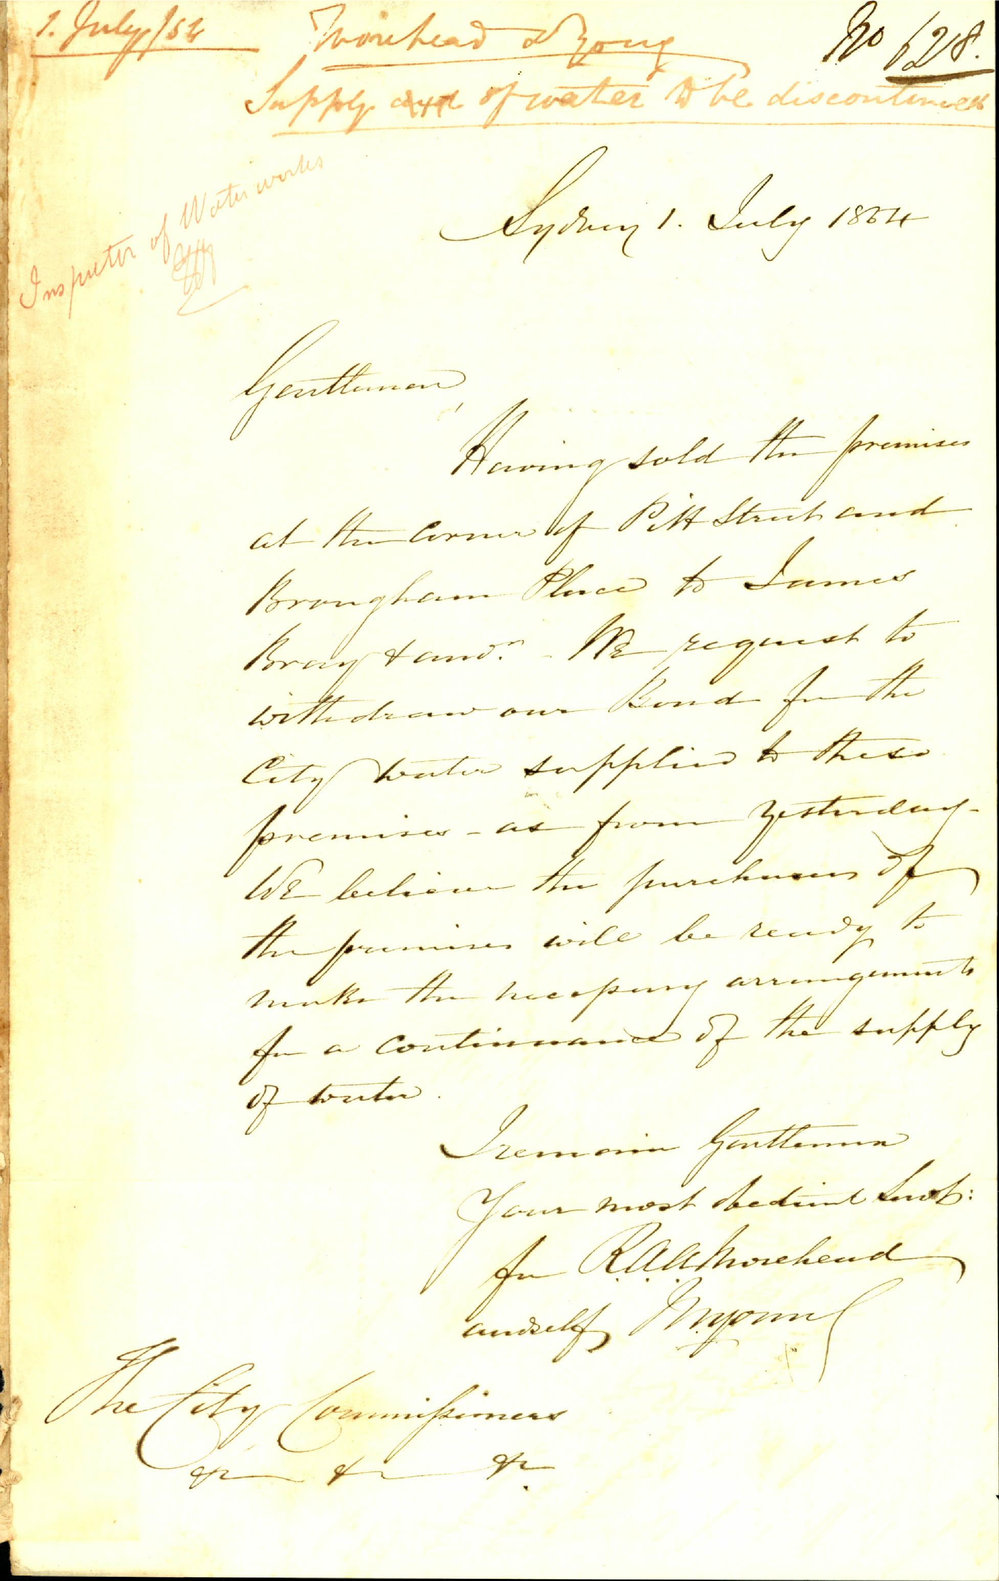 1. July/54 Morehead & Young No 628.
Supply of water to be discontinued
Inspector of Waterworks
Sydney 1. July 1854
Gentlemen,
Having sold the premises
at the Corner of Pitt Street and
Brougham Place to James
Bray & anor. - We request to
withdraw our Bond for the
City water supplied to these
premises - as from yesterday -
We believe the purchasers of
the premises will be ready to
make the necessary arrangements
for a continuance of the supply
of water.
I remain Gentlemen
Your most obedient Servt:
for R.A.A. Morehead
and self
The City Commissioners
&c &c &c.